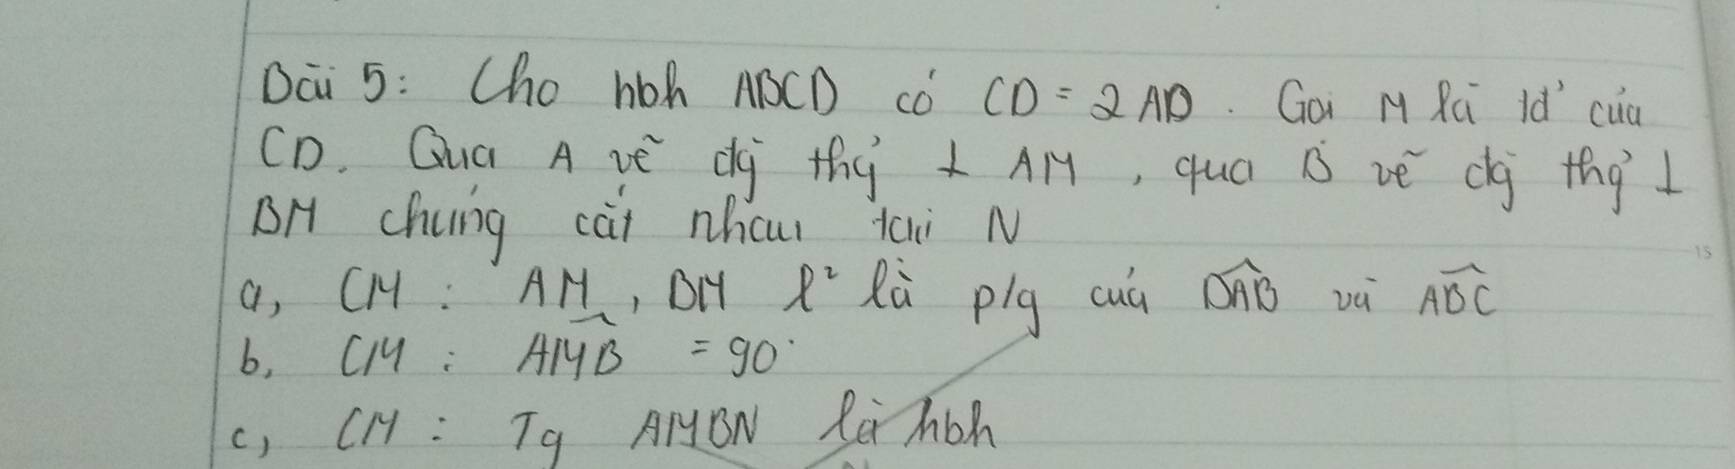 Bài 5: Cho hbh ABCD có CD = 2AD. Gọi M là tđ' của
CD. Qua A vẽ đg thg̉ ⊥ AM, qua B vẽ đg thg̉ ⊥
BM chúng cắt nhau tại N
a, CM: AM, BM l² là p/g của DAB và ABC
b, CM: AMB = 90°
c, CM: Tg AMBN là hbh
15